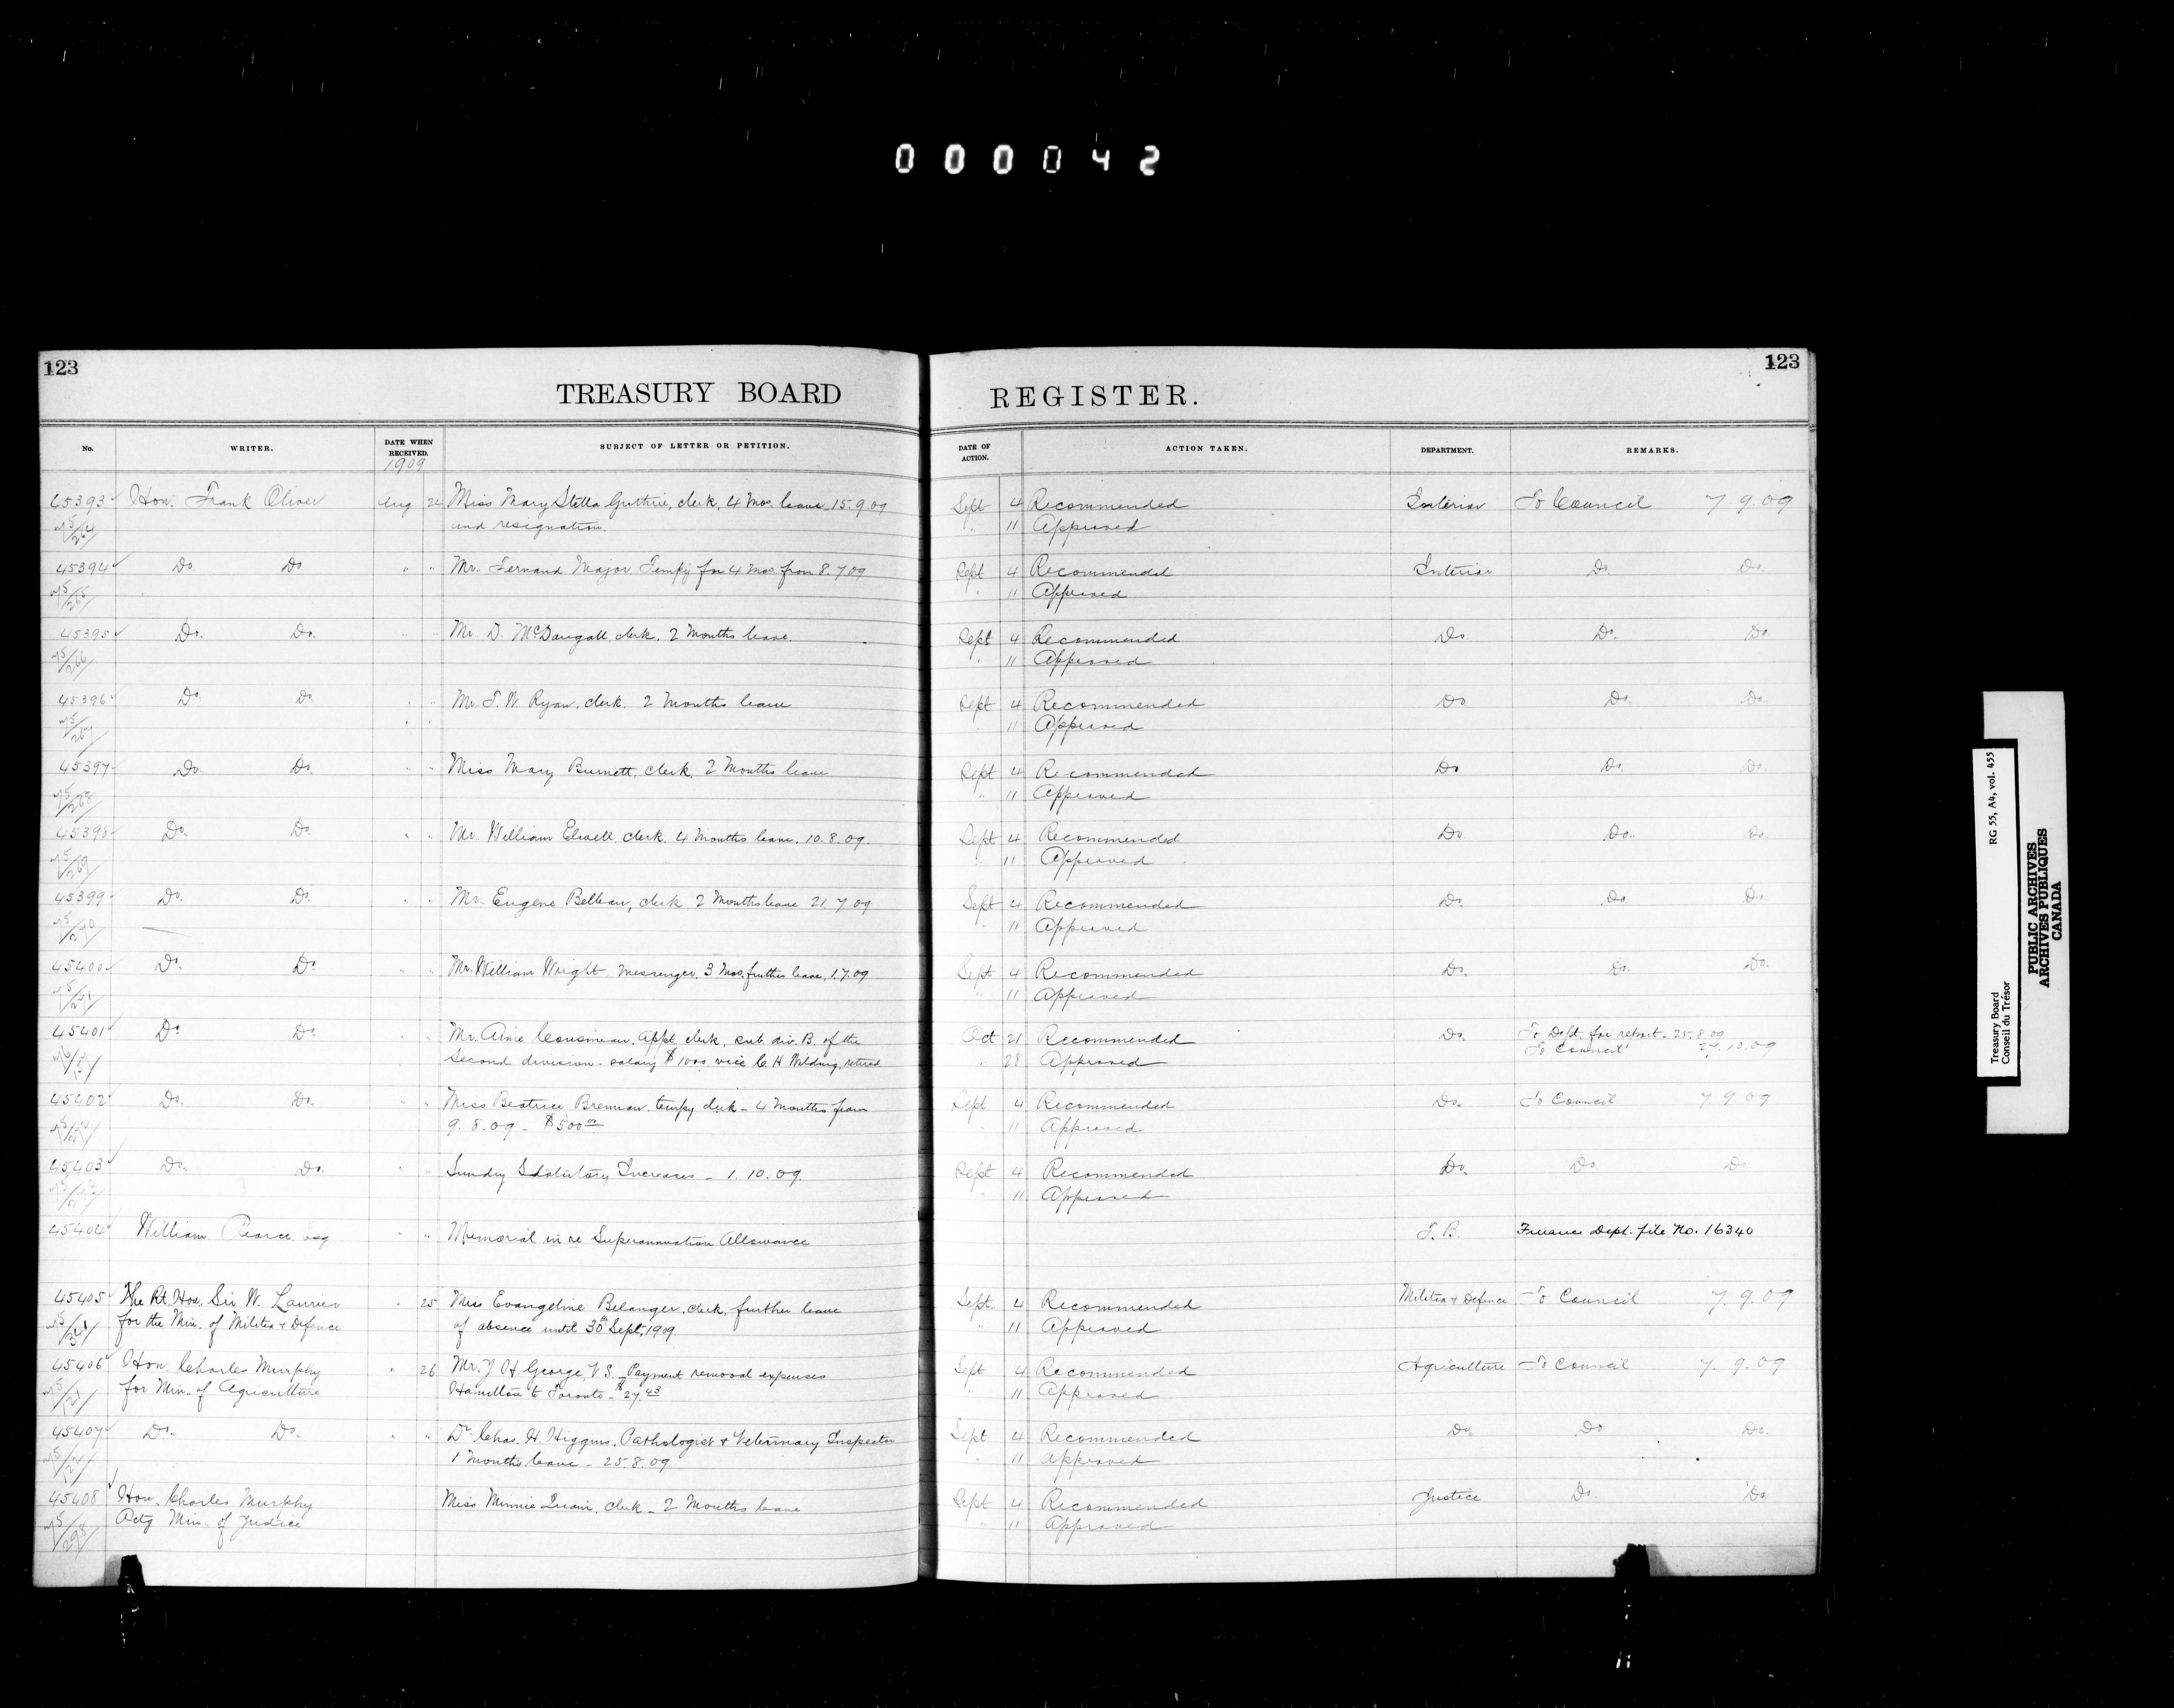 000042
123
TREASURY BOARD
REGISTER.
123
No. WRITER. DATE WHEN RECEIVED. SUBJECT OF LETTER OR PETITION. DATE OF ACTION. ACTION TAKEN. DEPARTMENT. REMARKS.
1909
45393 Hon. Frank Oliver Aug 24 Miss Mary Stella Guthrie, clerk, 4 Mos. leave 15.9.09 Sept 4 Recommended Interior To Council 7 9.09
and resignation. " 11 Approved
45394 Do Do " " Mr. Fernand Major Tempy for 4 Mos. from 8.7.09 Sept 4 Recommended Interior Do. Do.
" 11 Approved
45395 Do. Do. " " Mr. D. McDougall, clerk, 2 Months leave. Sept 4 Recommended Do Do. Do
" 11 Approved
45396 Do Do " " Mr. T. W. Ryan, clerk. 2 Months leave Sept 4 Recommended Do Do. Do.
" 11 Approved
45397 Do. Do. " " Miss Mary Burnett, clerk, 2 Months leave Sept 4 Recommended Do Do. Do.
" 11 Approved
45398 Do. Do. " " Mr. William Elwell, clerk. 4 Months leave, 10.8.09. Sept 4 Recommended Do Do. Do.
" 11 Approved
45399 Do. Do. " " Mr. Eugene Belleau, clerk, 2 Months leave 21 7 09 Sept 4 Recommended Do. Do. Do.
" 11 Approved
45400 Do. Do. " " Mr. William Wright, messenger, 3 Mos. further leave, 1.7.09 Sept 4 Recommended Do. Do. Do.
" 11 Approved
45401 Do. Do. " " Mr. Aime Cousineau, Appt. clerk, sub. div. B. of the Oct 21 Recommended Do. To Dept. for report - 25.8.09
Second division - salary $1000 vice C. H Wilding, retired " 28 Approved To Council 27.10.09
45402 Do. Do. " " Miss Beatrice Brennan, tempy clerk - 4 Months from Sept 4 Recommended Do. To Council 7. 9 09
9. 8. 09 - $500 00 " 11 Approved
45403 Do. Do. " " Sundry Statutory Increases - 1. 10. 09. Sept 4 Recommended Do. Do Do
" 11 Approved
45404 William Pearce Esq " " Memorial in re Superannuation Allowance T. B. Finance Dept. file No. 16340
45405 The Rt. Hon. Sir W. Laurier " 25 Miss Evangeline Belanger, clerk, further leave Sept. 4 Recommended Militia & Defence To Council 7. 9. 09
for the Min. of Militia & Defence of absence until 30th Sept, 1909. " 11 Approved
45406 Hon. Charles Murphy " 26 Mr. J H George, V.S. - Payment removal expenses Sept 4 Recommended Agriculture To Council 7. 9. 09
for Min. of Agriculture Hamilton to Toronto - $27.43 " 11 Approved
45407 Do. Do. " " Dr. Chas. H. Higgins, Pathologist & Veterinary Inspector Sept 4 Recommended Do. Do Do.
1 Months leave - 25.8.09. " 11 Approved
45408 Hon. Charles Murphy Miss Minnie Quain, clerk - 2 Months leave Sept 4 Recommended Justice Do. Do
Actg Min. of Justice " 11 Approved
Treasury Board RG 55, A4, vol. 455
Conseil du Trésor
PUBLIC ARCHIVES
ARCHIVES PUBLIQUES
CANADA